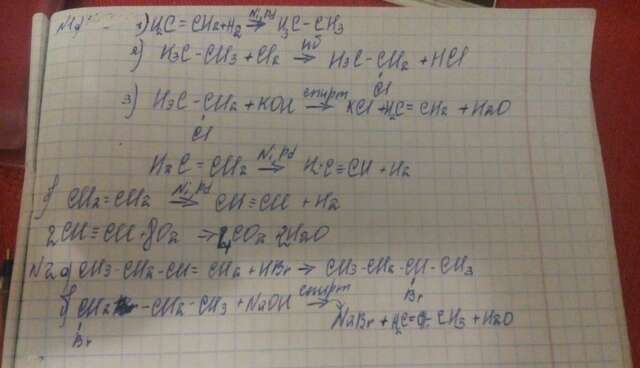 N1a) 1) H2C=CH2+H2 Ni,Pd→ H3C-CH3
2) H3C-CH3+Cl2 hν→ H3C-CH2+HCl
Cl
3) H3C-CH2+KOH спирт→ KCl+H2C=CH2+H2O
Cl
H2C=CH2 Ni,Pd→ HC≡CH+H2
б) CH2=CH2 Ni,Pd→ CH≡CH+H2
2CH≡CH+ O2 → 4CO2 2H2O
N2a) CH3-CH2-CH=CH2+HBr→ CH3-CH2-CH-CH3
Br
б) CH2-CH2-CH3+NaOH спирт→
Br
NaBr+H2C=C-CH3+H2O